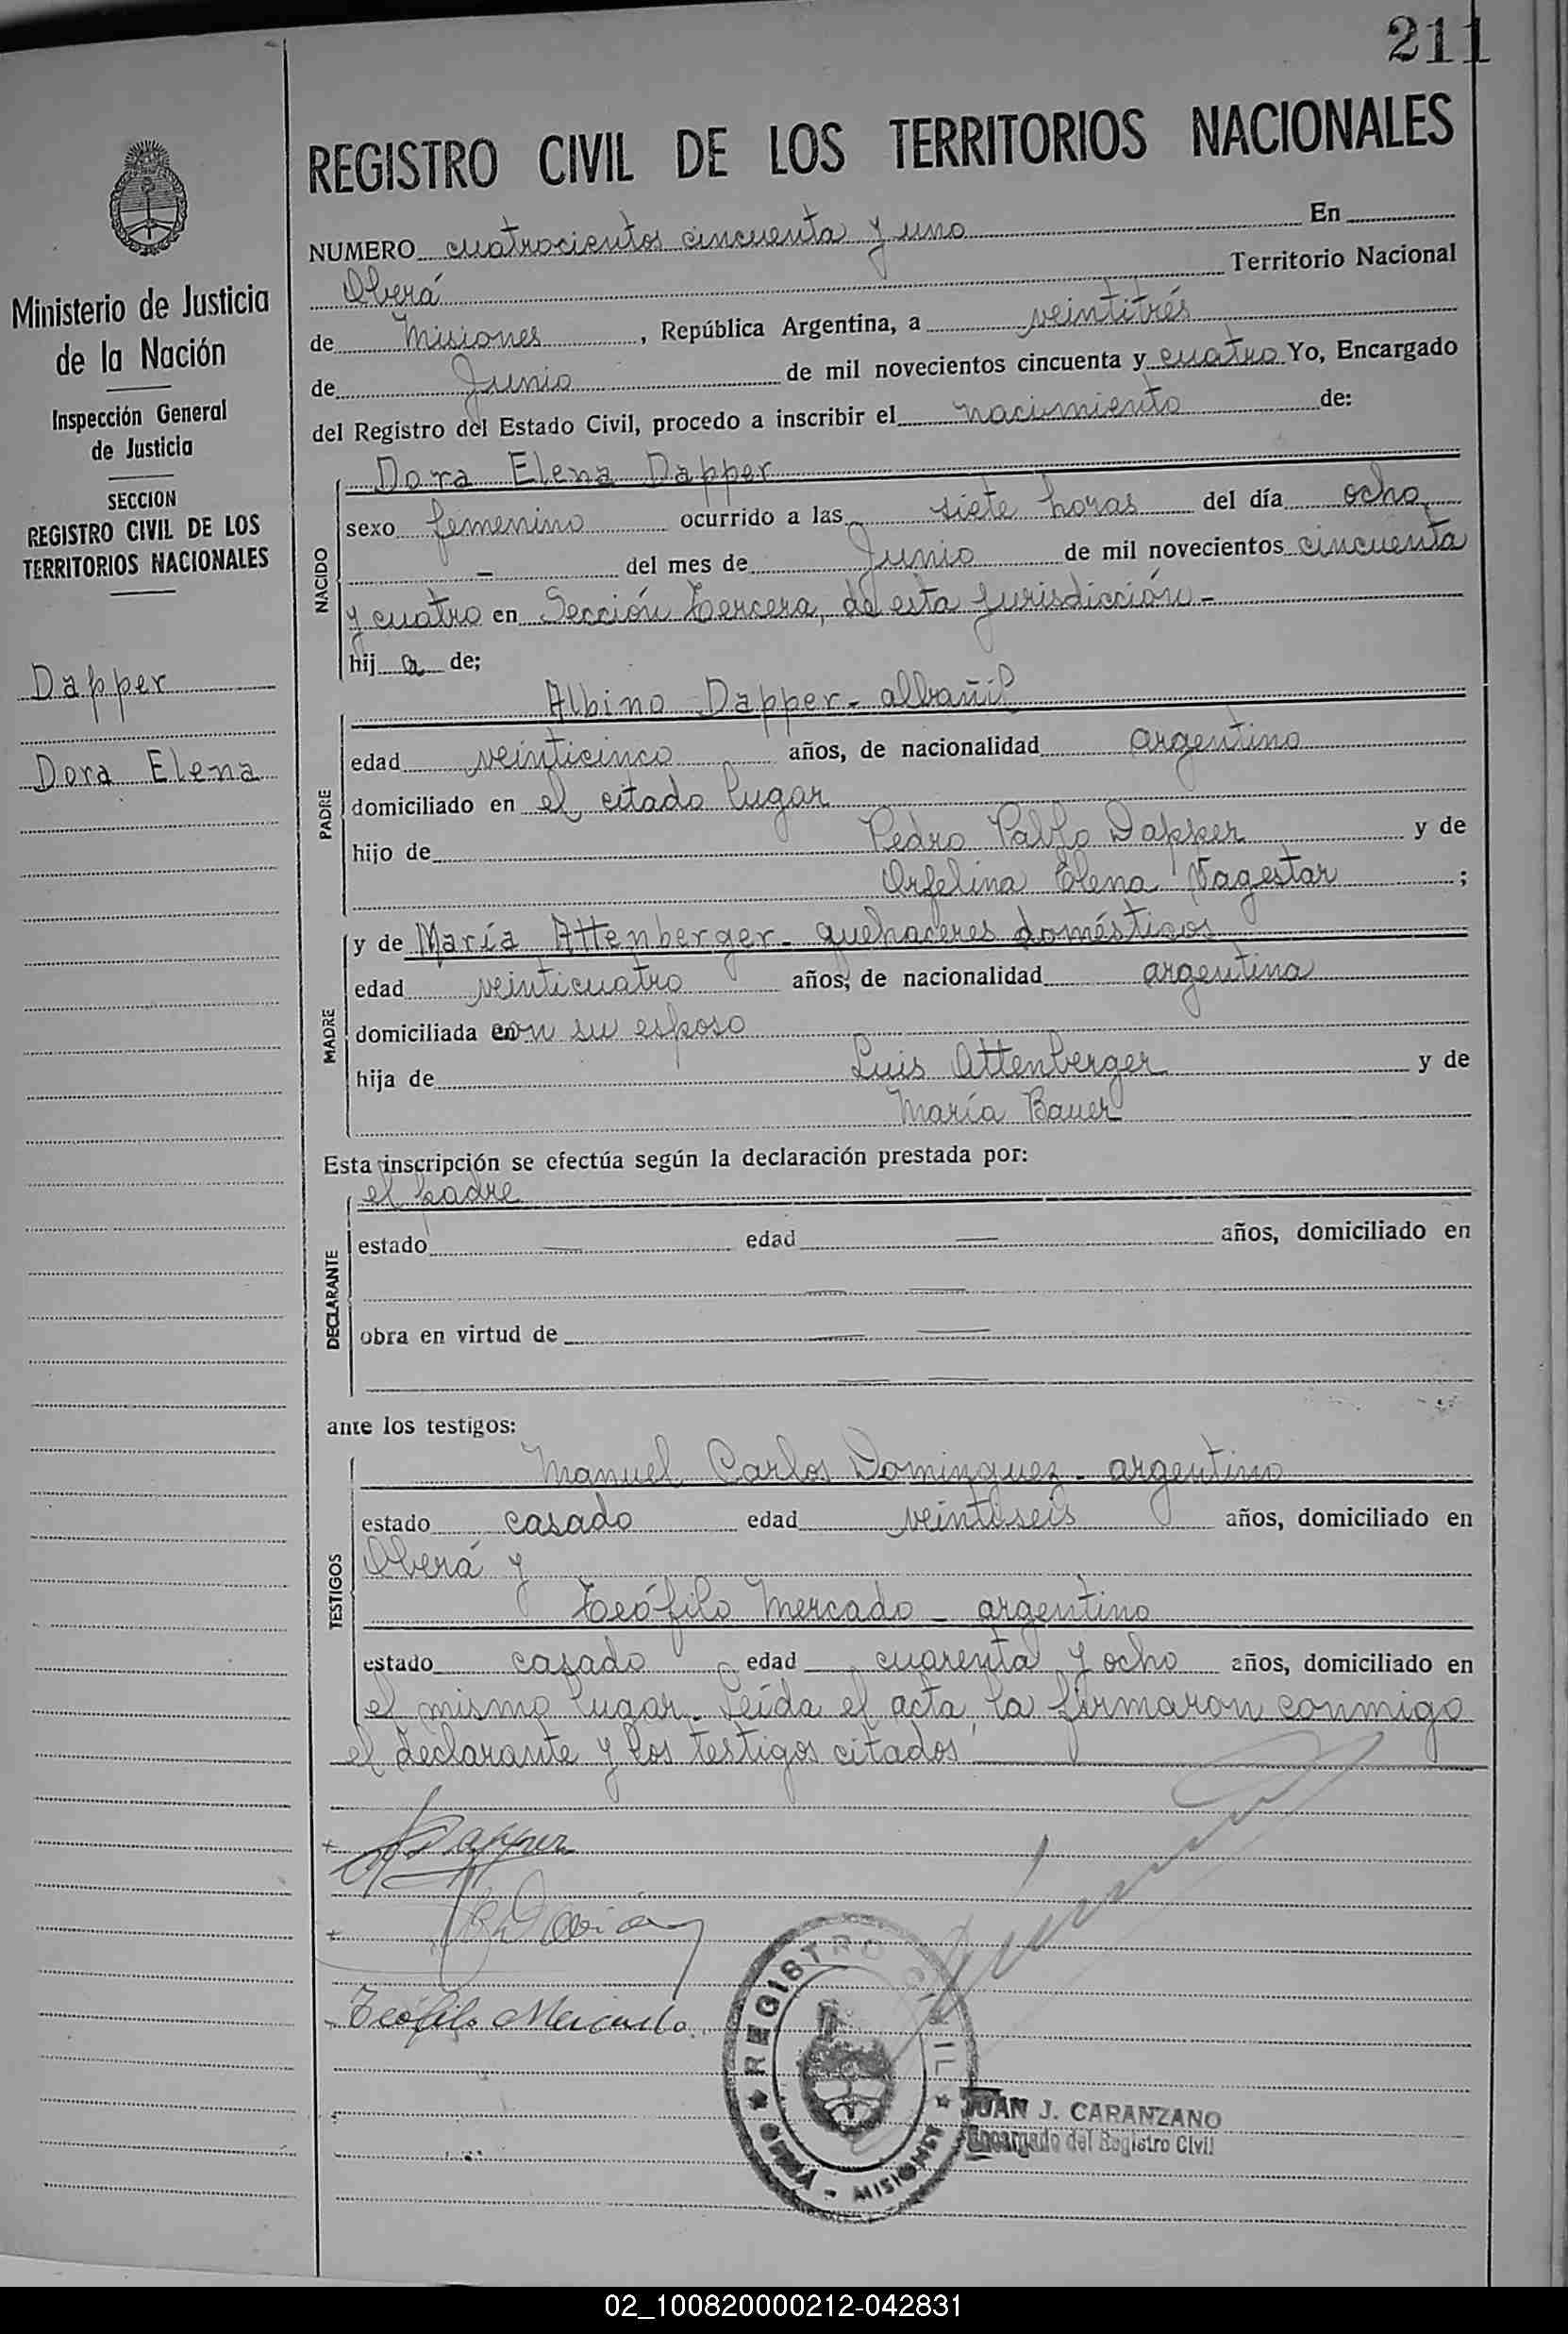 211
REGISTRO CIVIL DE LOS TERRITORIOS NACIONALES
Ministerio de Justicia
de la Nación
Inspección General
de Justicia
SECCION
REGISTRO CIVIL DE LOS
TERRITORIOS NACIONALES
Dapper
Dora Elena
NUMERO cuatrocientos cincuenta y uno En
Oberá Territorio Nacional
de Misiones, República Argentina, a veintitrés
de Junio de mil novecientos cincuenta y cuatro Yo, Encargado
del Registro del Estado Civil, procedo a inscribir el nacimiento de:
NACIDO
Dora Elena Dapper
sexo femenino ocurrido a las siete horas del día ocho
- del mes de Junio de mil novecientos cincuenta
y cuatro en Sección tercera, de esta jurisdicción -
hij a de;
PADRE
Albino Dapper - albañil
edad veinticinco años, de nacionalidad argentino
domiciliado en el citado lugar
hijo de Pedro Pablo Dapper y de
Orfelina Elena Nagestar ;
MADRE
y de María Attenberger - quehaceres domésticos
edad veinticuatro años, de nacionalidad argentina
domiciliada con su esposo
hija de Luis Attenberger y de
María Bauer
Esta inscripción se efectúa según la declaración prestada por:
DECLARANTE
el padre
estado — edad — años, domiciliado en
— —
obra en virtud de — —
— —
ante los testigos:
TESTIGOS
Manuel Carlos Dominguez - argentino
estado casado edad veintiseis años, domiciliado en
Oberá y
Teófilo Mercado - argentino
estado casado edad cuarenta y ocho años, domiciliado en
el mismo lugar. Leída el acta, la firmaron conmigo
el declarante y los testigos citados
+ A Dapper
+
Teófilo Mercado
REGISTRO CIVIL
OBERÁ - MISIONES
JUAN J. CARANZANO
Encargado del Registro Civil
02_100820000212-042831